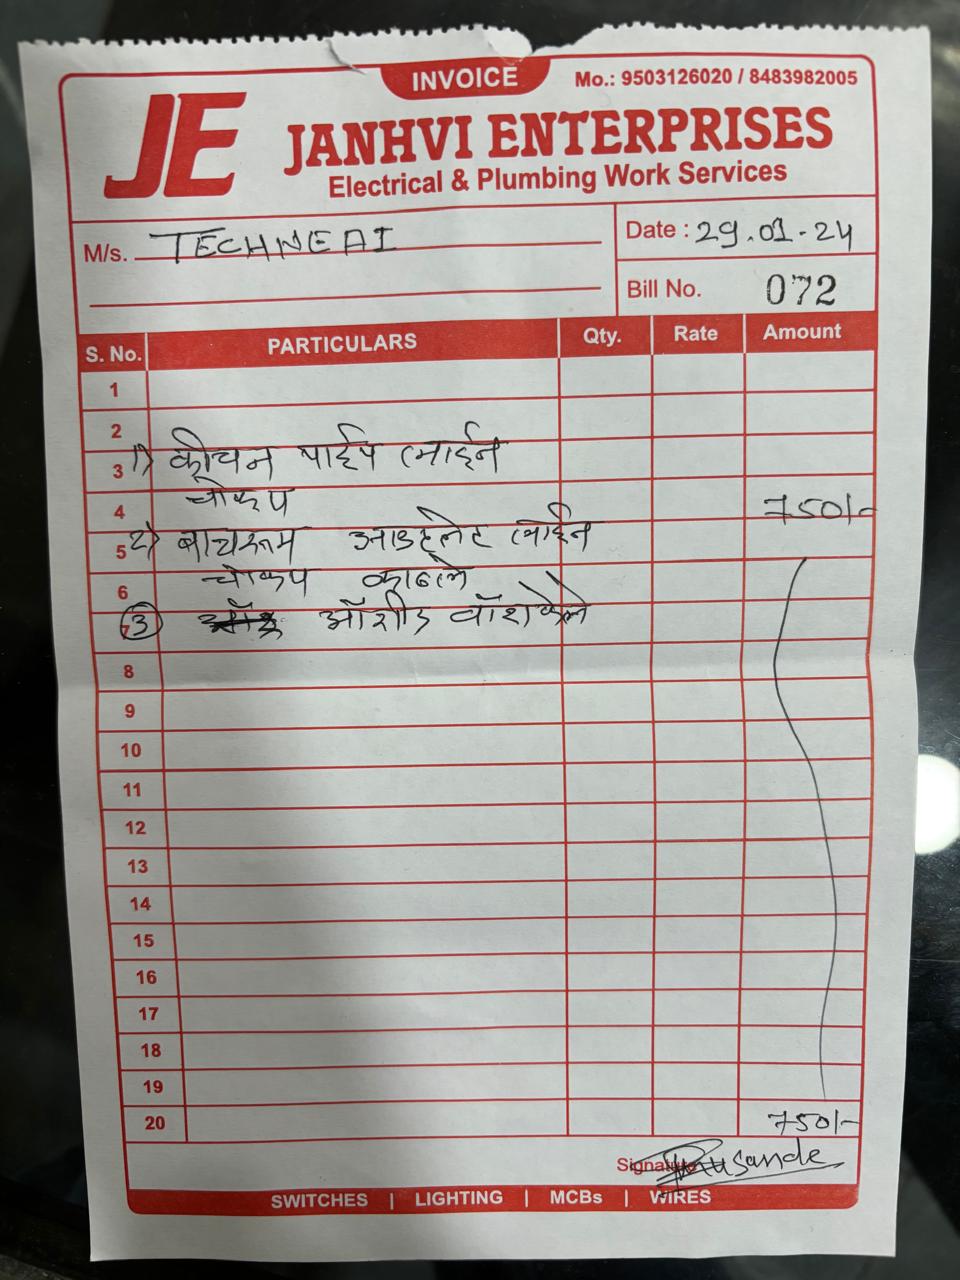 INVOICE
Mo.: 9503126020 / 8483982005
JE
JANHVI ENTERPRISES
Electrical & Plumbing Work Services
M/s. TECHNEAI
Date : 29.01-24
Bill No. 072
S. No. PARTICULARS Qty. Rate Amount
1
2
3 1) कीचन पाईप लाईन
4 चोकप 750/-
5 2) बाथरूम आउटलेट लाईन
6 चोकप काढले
7 3 ऑसीड वॉश केले
8
9
10
11
12
13
14
15
16
17
18
19
20 750/-
Signature
SWITCHES | LIGHTING | MCBs | WIRES